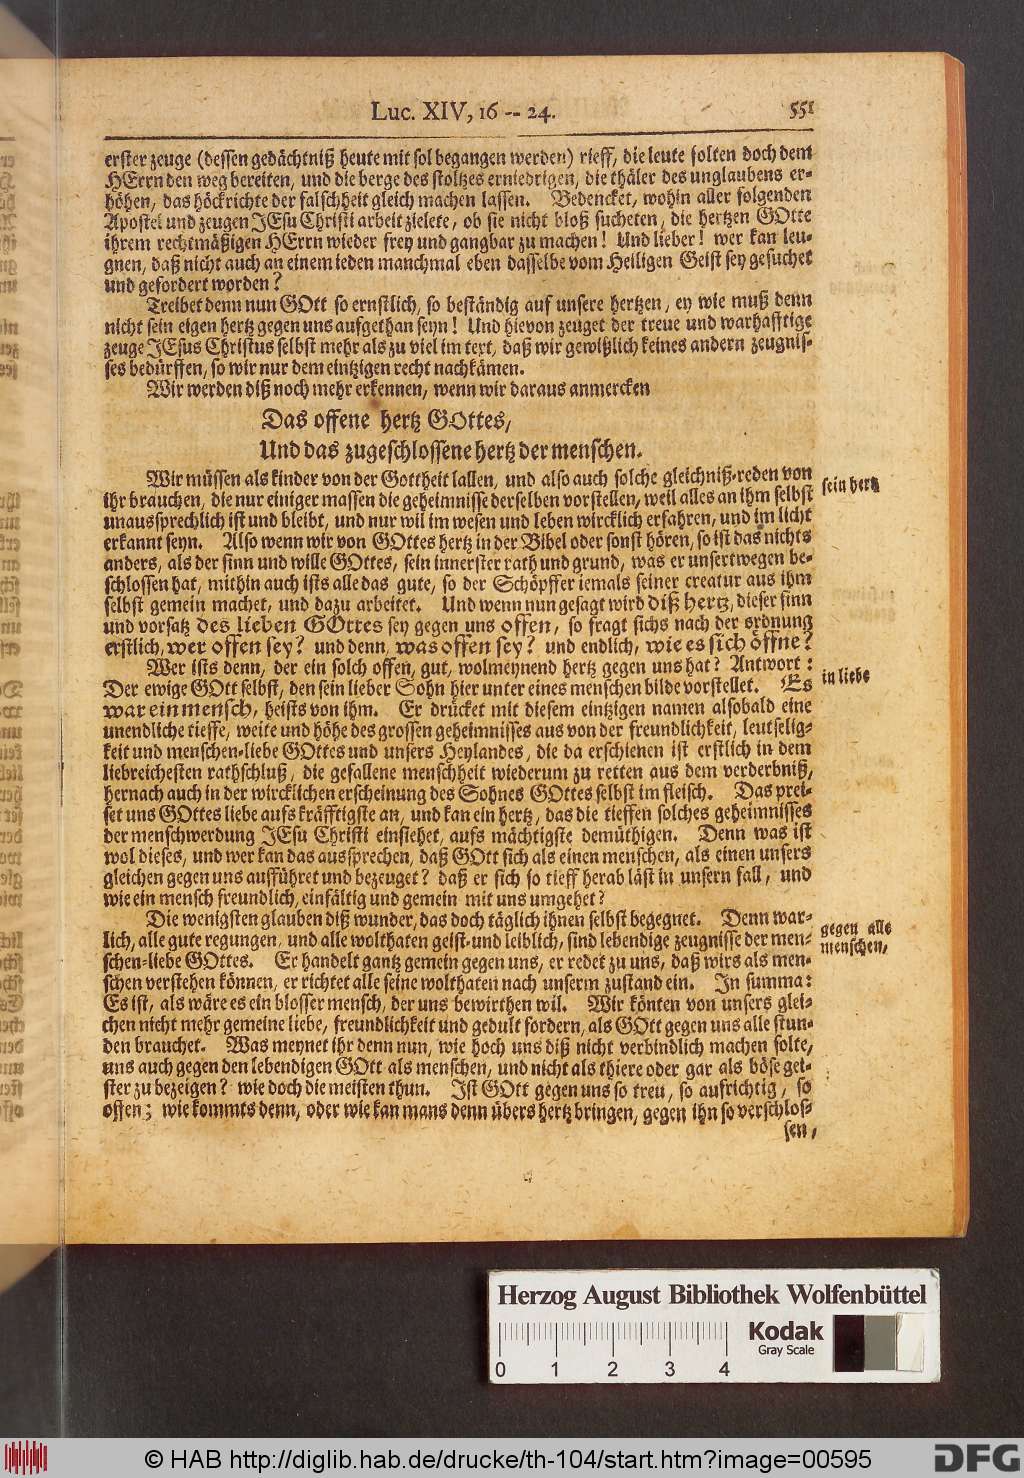 Luc. XIV, 16 -- 24. 551
erster zeuge (dessen gedächtniß heute mit sol begangen werden) rieff, die leute solten doch dem
HErrn den weg bereiten, und die berge des stoltzes erniedrigen, die thäler des unglaubens er-
höhen, das höckrichte der falschheit gleich machen lassen. Bedencket, wohin aller folgenden
Apostel und zeugen JEsu Christi arbeit zielete, ob sie nicht bloß sucheten, die hertzen GOtte
ihrem rechtmäßigen HErrn wieder frey und gangbar zu machen! Und lieber! wer kan leu-
gnen, daß nicht auch an einem ieden manchmal eben dasselbe vom Heiligen Geist sey gesuchet
und gefordert worden?
Treibet denn nun GOtt so ernstlich, so beständig auf unsere hertzen, ey wie muß denn
nicht sein eigen hertz gegen uns aufgethan seyn! Und hievon zeuget der treue und warhafftige
zeuge JEsus Christus selbst mehr als zu viel im text, daß wir gewißlich keines andern zeugnis-
ses bedürffen, so wir nur dem eintzigen recht nachkämen.
Wir werden diß noch mehr erkennen, wenn wir daraus anmercken
Das offene hertz GOttes,
Und das zugeschlossene hertz der menschen.
Wir müssen als kinder von der Gottheit lallen, und also auch solche gleichniß-reden von
ihr brauchen, die nur einiger massen die geheimnisse derselben vorstellen, weil alles an ihm selbst
unaussprechlich ist und bleibt, und nur wil im wesen und leben wircklich erfahren, und im licht
erkannt seyn. Also wenn wir von GOttes hertz in der Bibel oder sonst hören, so ist das nichts
anders, als der sinn und wille GOttes, sein innerster rath und grund, was er unsertwegen be-
schlossen hat, mithin auch ists alle das gute, so der Schöpffer iemals seiner creatur aus ihm
selbst gemein machet, und dazu arbeitet. Und wenn nun gesagt wird diß hertz, dieser sinn
und vorsatz des lieben GOttes sey gegen uns offen, so fragt sichs nach der ordnung
erstlich, wer offen sey? und denn, was offen sey? und endlich, wie es sich öffne?
sein hertz
Wer ists denn, der ein solch offen, gut, wolmeynend hertz gegen uns hat? Antwort:
Der ewige GOtt selbst, den sein lieber Sohn hier unter eines menschen bilde vorstellet. Es
war ein mensch, heists von ihm. Er drücket mit diesem eintzigen namen alsobald eine
unendliche tieffe, weite und höhe des grossen geheimnisses aus von der freundlichkeit, leutselig-
keit und menschen-liebe GOttes und unsers Heylandes, die da erschienen ist erstlich in dem
liebreichesten rathschluß, die gefallene menschheit wiederum zu retten aus dem verderbniß,
hernach auch in der wircklichen erscheinung des Sohnes GOttes selbst im fleisch. Das prei-
set uns GOttes liebe aufs kräfftigste an, und kan ein hertz, das die tieffen solches geheimnisses
der menschwerdung JEsu Christi einsiehet, aufs mächtigste demüthigen. Denn was ist
wol dieses, und wer kan das aussprechen, daß GOtt sich als einen menschen, als einen unsers
gleichen gegen uns aufführet und bezeuget? daß er sich so tieff herab läst in unsern fall, und
wie ein mensch freundlich, einfältig und gemein mit uns umgehet?
in liebe
Die wenigsten glauben diß wunder, das doch täglich ihnen selbst begegnet. Denn war-
lich, alle gute regungen, und alle wolthaten geist-und leiblich, sind lebendige zeugnisse der men-
schen-liebe GOttes. Er handelt gantz gemein gegen uns, er redet zu uns, daß wirs als men-
schen verstehen können, er richtet alle seine wolthaten nach unserm zustand ein. In summa:
Es ist, als wäre es ein blosser mensch, der uns bewirthen wil. Wir könten von unsers glei-
chen nicht mehr gemeine liebe, freundlichkeit und gedult fordern, als GOtt gegen uns alle stun-
den brauchet. Was meynet ihr denn nun, wie hoch uns diß nicht verbindlich machen solte,
uns auch gegen den lebendigen GOtt als menschen, und nicht als thiere oder gar als böse gei-
ster zu bezeigen? wie doch die meisten thun. Ist GOtt gegen uns so treu, so aufrichtig, so
offen; wie kommts denn, oder wie kan mans denn übers hertz bringen, gegen ihn so verschlos-
sen,
gegen alle
menschen,
Herzog August Bibliothek Wolfenbüttel
0 1 2 3 4
Kodak
Gray Scale
© HAB http://diglib.hab.de/drucke/th-104/start.htm?image=00595
DFG